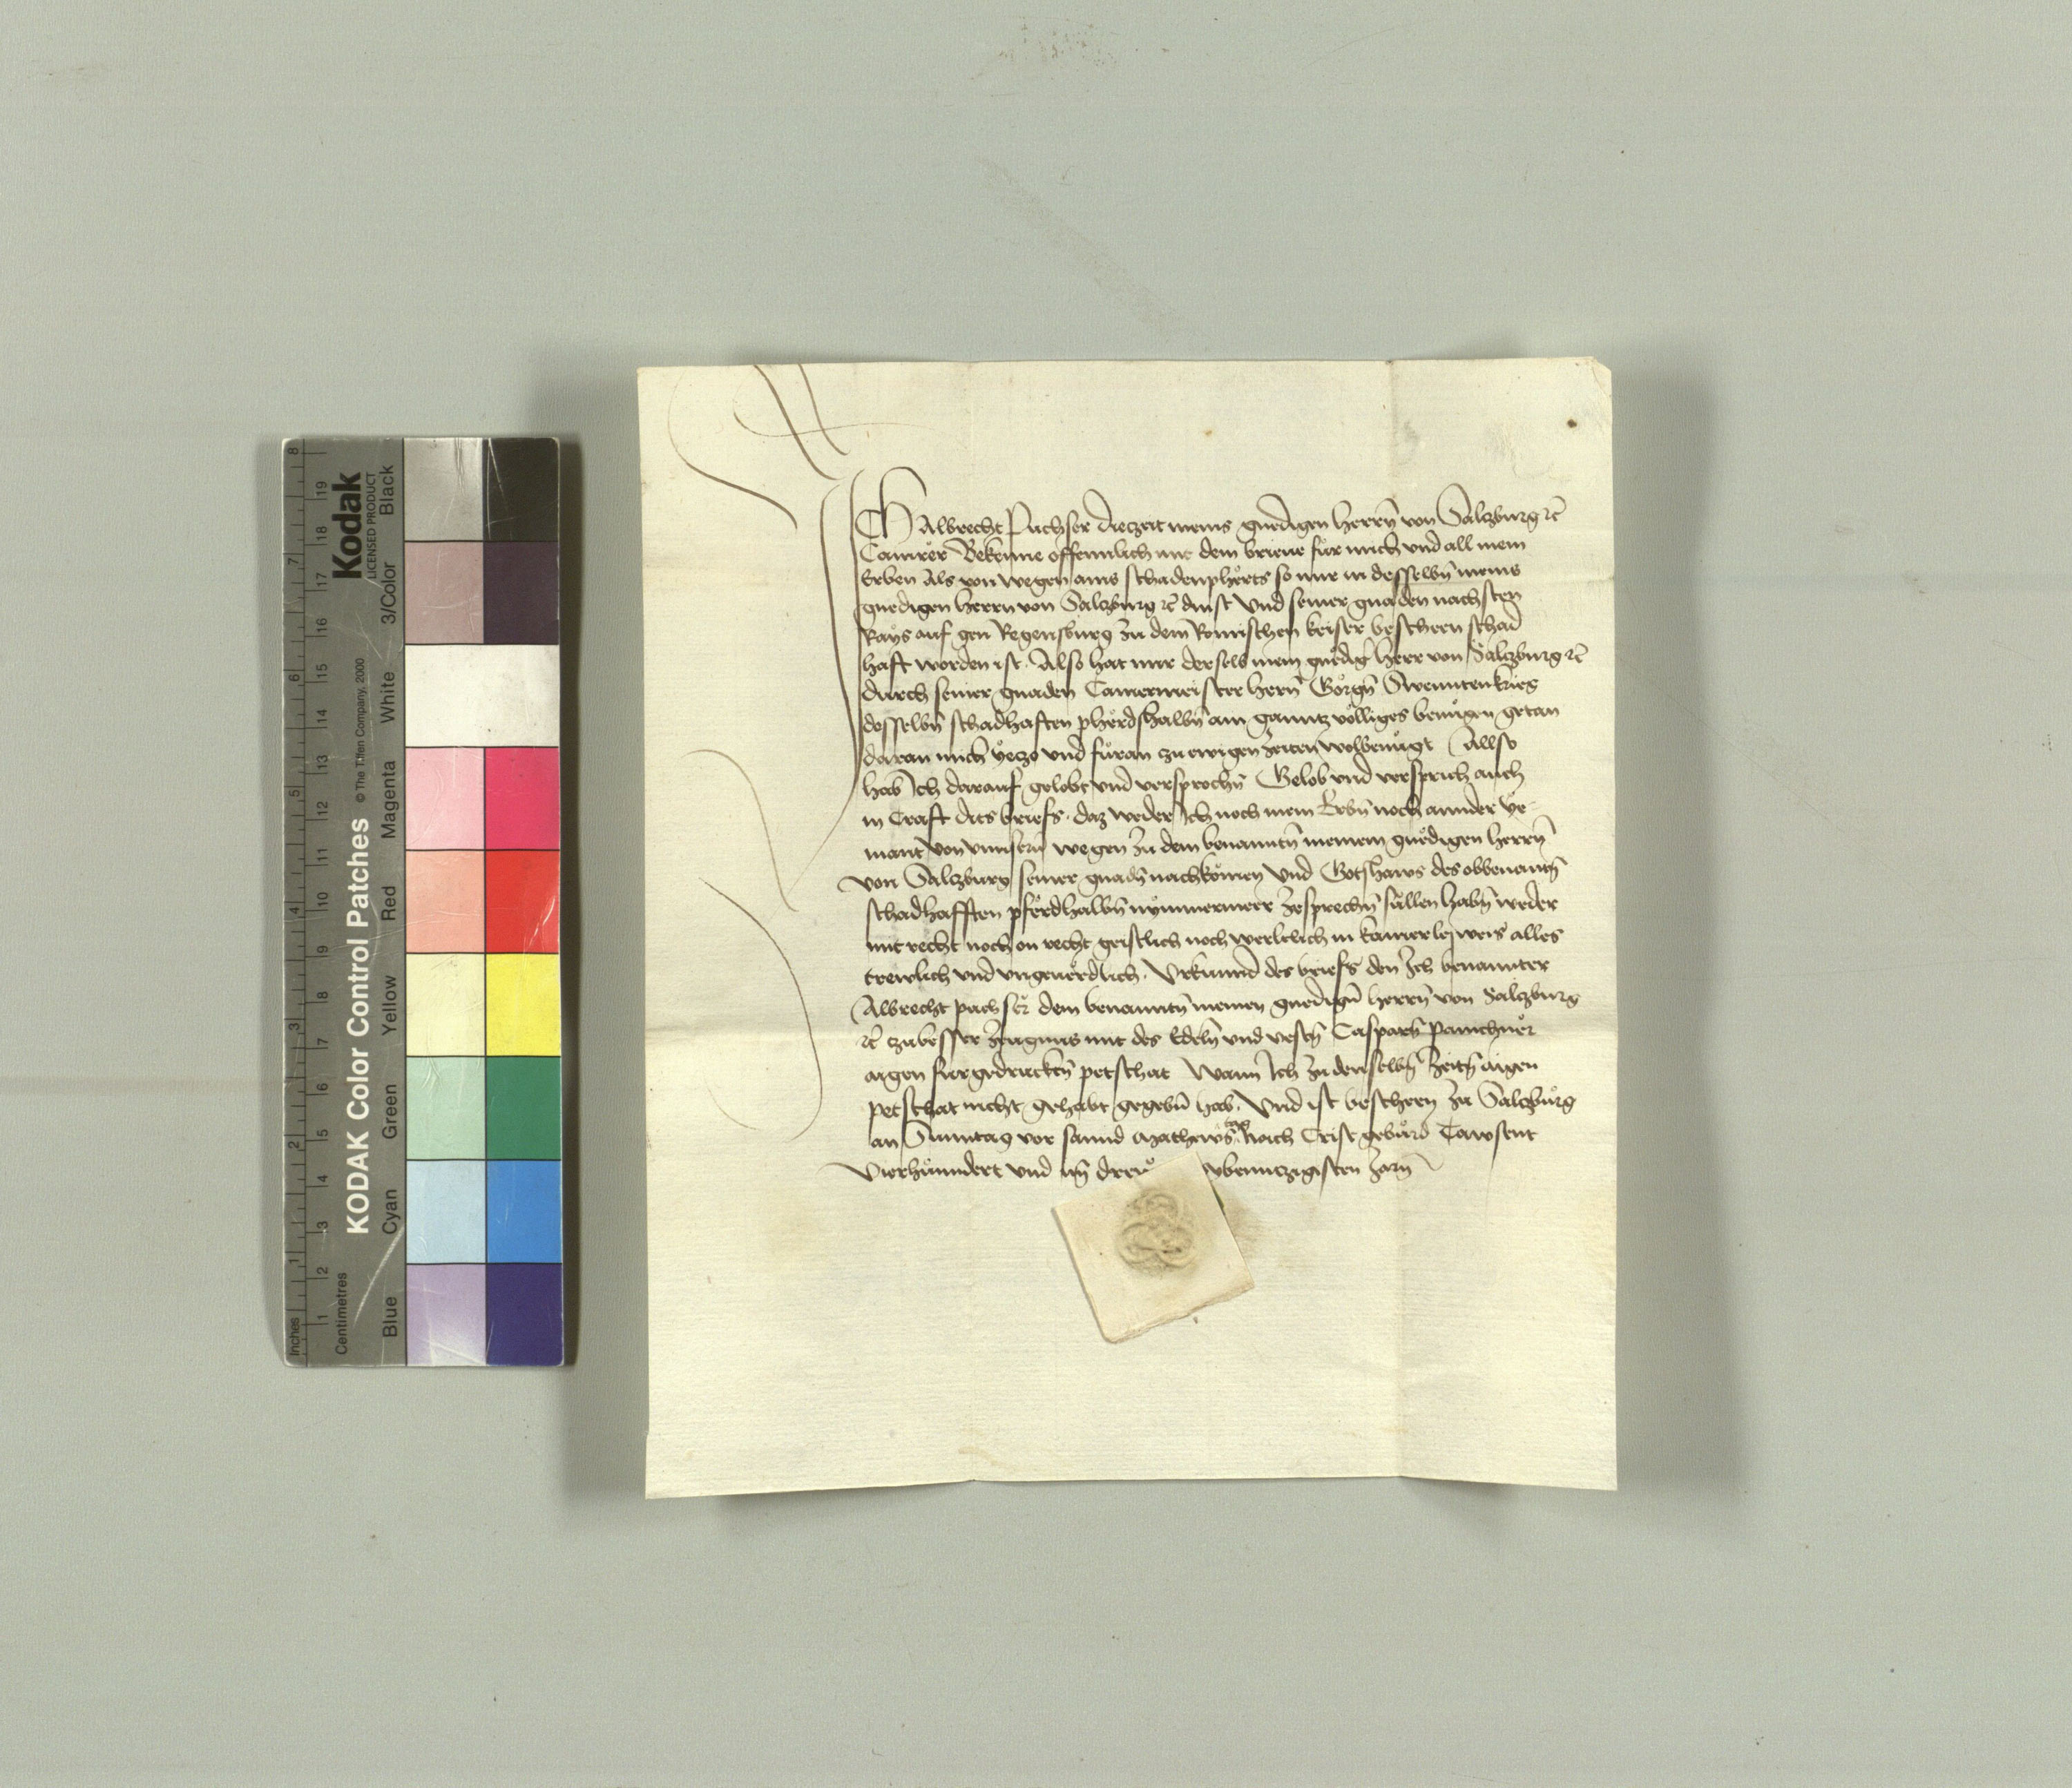 KODAK Color Control Patches © The Tiffen Company, 2000
Kodak
LICENSED PRODUCT
Inches 1 2 3 4 5 6 7 8
Centimetres 1 2 3 4 5 6 7 8 9 10 11 12 13 14 15 16 17 18 19
Blue Cyan Green Yellow Red Magenta White 3/Color Black
ICH Albrecht Puchser diezeit meins gnedigen herrn̄ von Salzburg ꝛc̄
Camrer Bekenne offennlich mit dem brieue fur mich vnd all mein
Erben Als von wegen ains schadenpherts so mir in desselbn̄ meins
gnedigen herrn von Salczburg ꝛc̄ dinst Vnd seiner gnaden nachsten
Rays auf gen Regenspurg zu dem Romischen keiser beschehen schad
haft worden ist. Also hat mir derselb mein gnedig herr von Salczburg ꝛc̄
durch seiner gnaden Camermeister hern̄ Görgn̄ Swenntenkrieg
desselbn̄ schadhaften pherdshalbn̄ ain ganntz völligs benügen getan
daran mich yeczo vnd füran zu ewigen zeiten wolbenügt Allso
hab Ich darauf gelobt vnd versprochn̄ Gelob vnd versprich auch
in Craft dits briefs. daz weder Ich noch mein Erbn̄ noch annder ye-
mant von vnnsern wegen zu dem benanntn̄ meinem gnedigen herrn̄
von Salczburg seiner gnadn̄ nachkomen Vnd Gotshaws des obbenantn̄
schadhafften pferdhalbn̄ nymmermer zesprechn̄ süllen habn̄ weder
mit recht noch on recht geistlich noch werltlich in kainerley weis alles
trewlich vnd vngeuerdlich. Vrkunnd des briefs den Ich benannter
Albrecht puchser dem benanntn̄ meinen gnedign̄ herrn̄ von Salczburg
ꝛc̄ zubesser zeugnus mit des Edeln̄ vnd vestn̄ Casparn̄ panichner
aigen furgedrucktn̄ petschat Wann Ich zu denselbn̄ zeitn̄ aigen
petschat nicht gehabt gegebn̄ hab. Vnd ist beschehen zu Salczburg
an Sunntag vor sannd Matheus tag Nach Crist geburd Tawsent
Vierhunndert vnd im drew ybenntzigisten Jarn̄